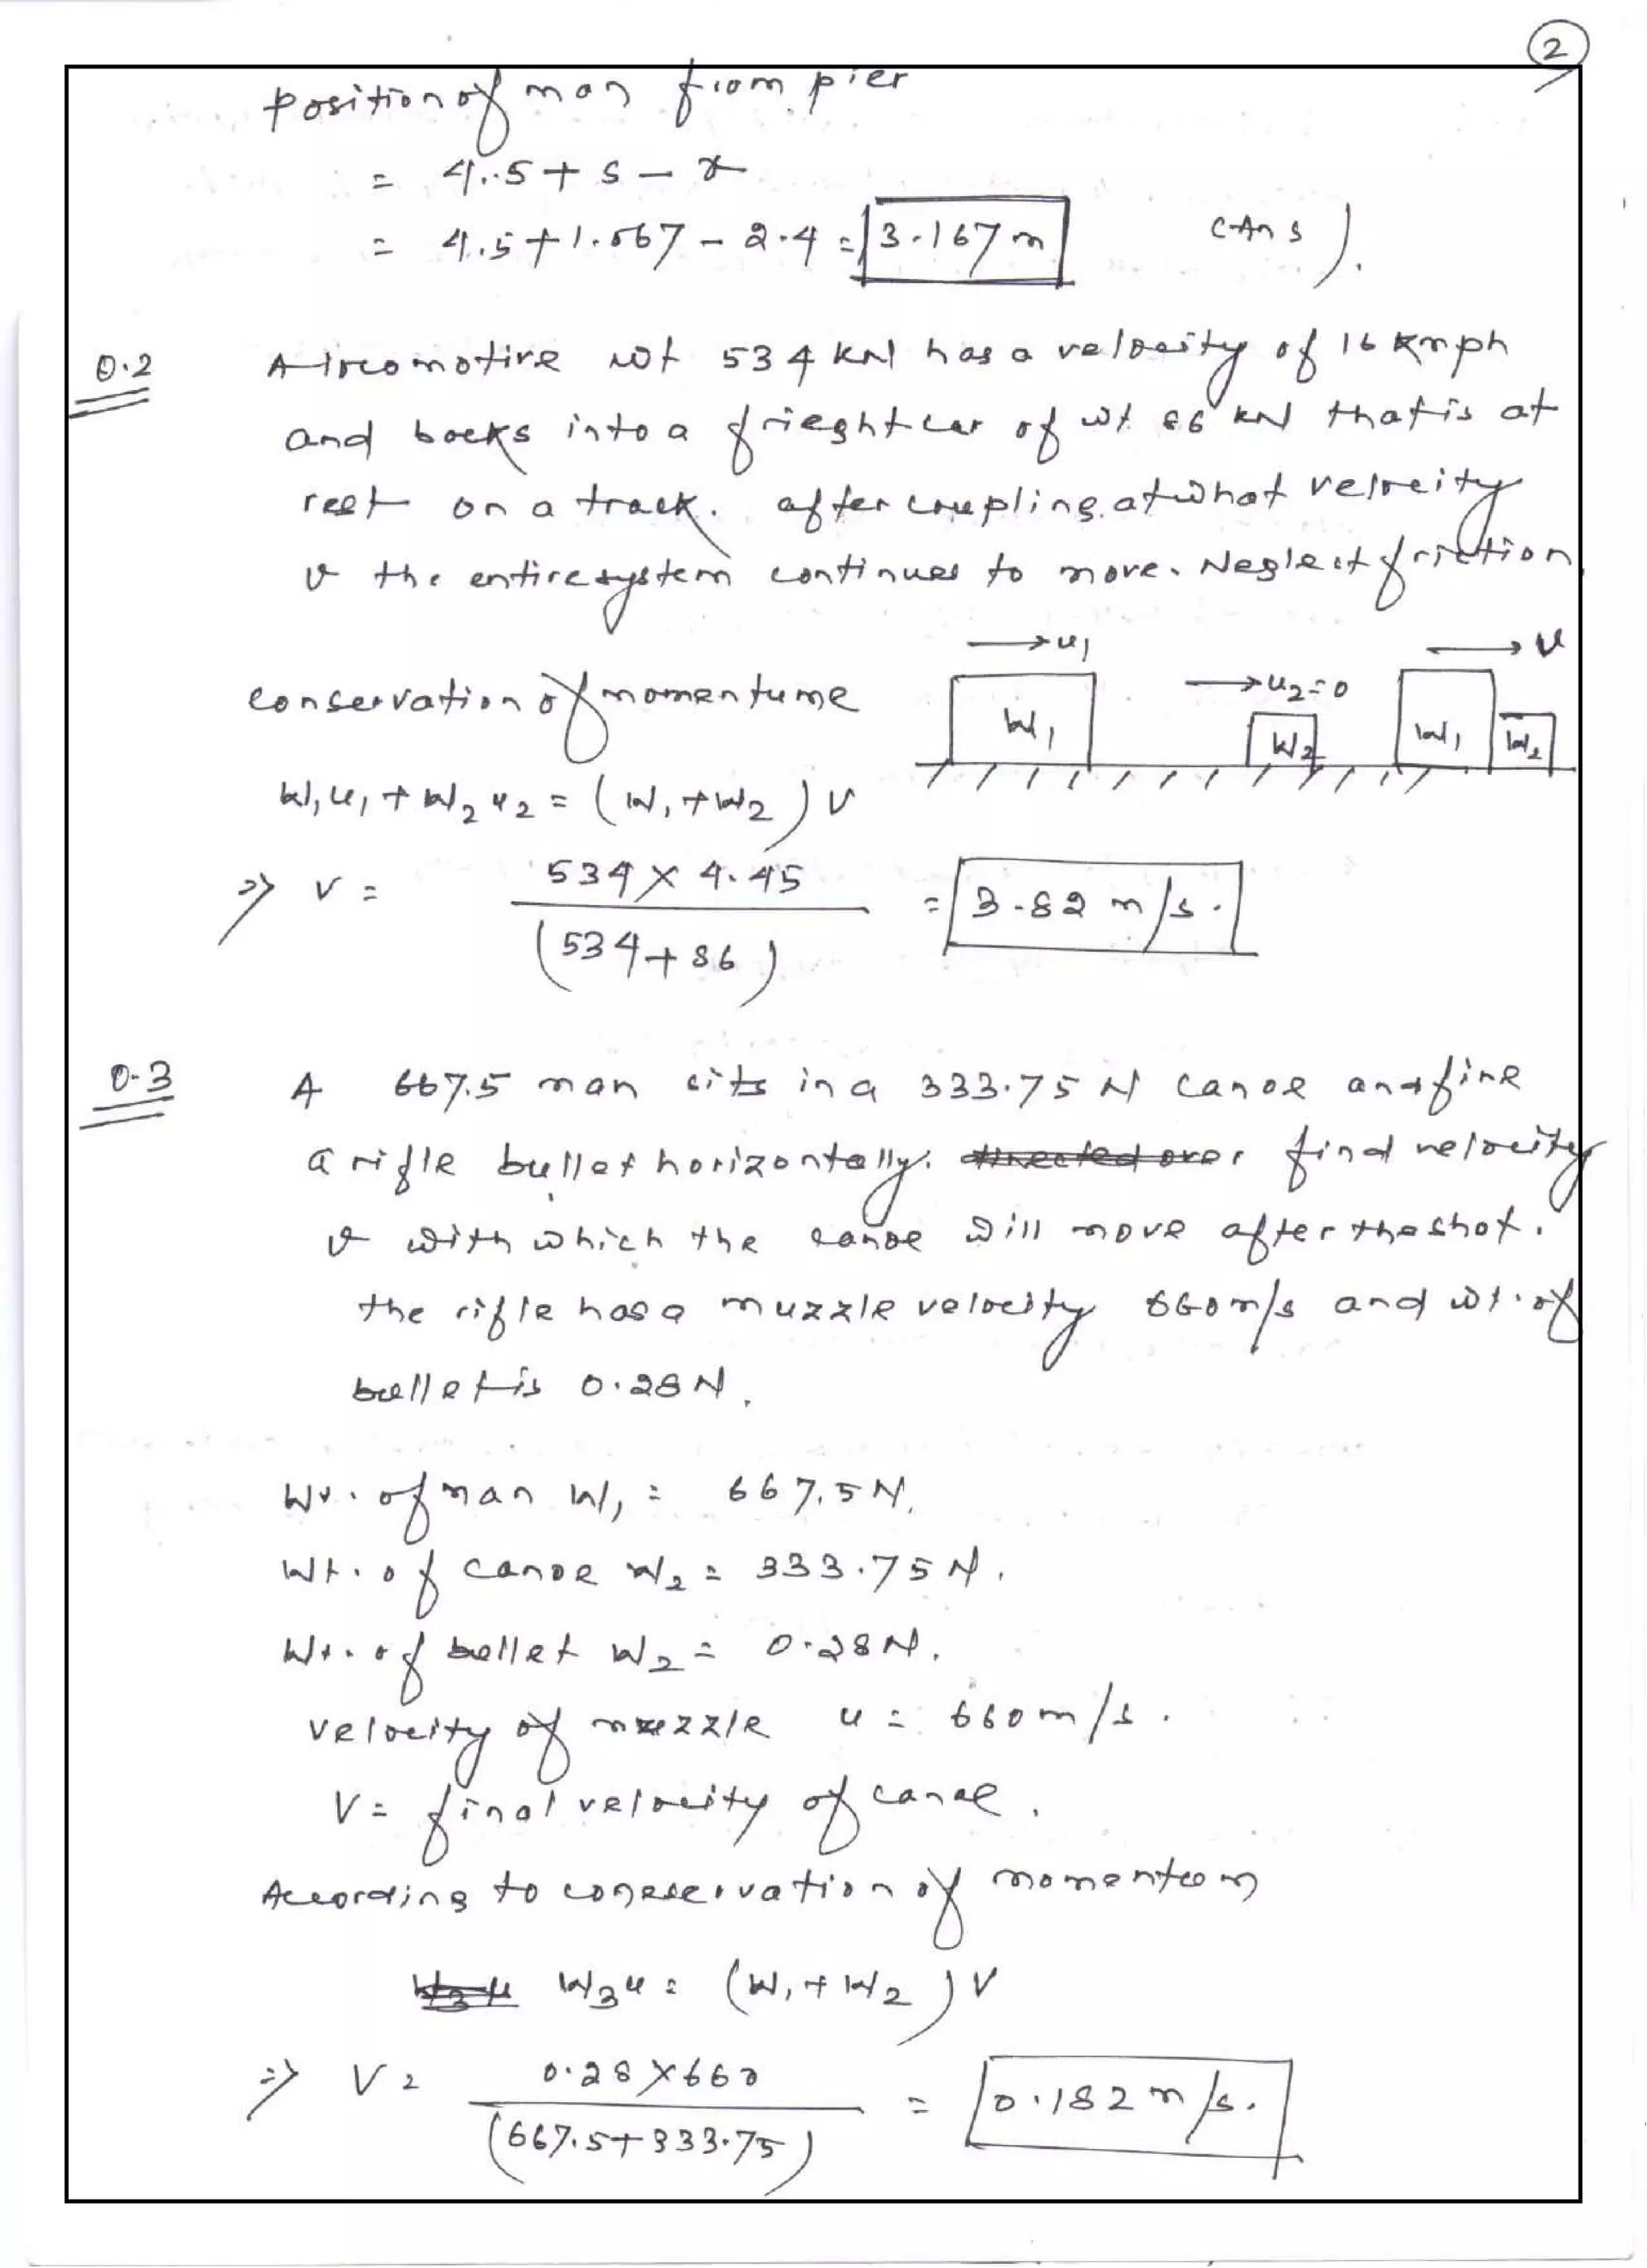 2
position of man from pier
= 4.5 + s - x
= 4.5 + 1.067 - 2.4 = 3.167 m (Ans).
Q.2 A locomotive wt 534 kN has a velocity of 16 kmph
and backs into a frieght car of wt 86 kN that is at
rest on a track. after coupling at what velocity
v the entire system continues to move. Neglect friction
→u1 →u2=0 →v
conservation of momentume
W1 W2 W1 W2
W1u1 + W2u2 = (W1 + W2) v
⇒ v = 534 × 4.45 / (534 + 86) = 3.82 m/s.
Q.3 A 667.5 man sits in a 333.75 N canoe and fire
a rifle bullet horizontally. directed over find velocity
v with which the canoe will move after the shot.
the rifle has a muzzle velocity 660 m/s and wt. of
bullet is 0.28 N.
Wt. of man W1 = 667.5 N.
Wt. of canoe W2 = 333.75 N.
Wt. of bullet W2 = 0.28 N.
velocity of muzzle u = 660 m/s.
V = final velocity of canoe.
According to conservation of momentum
W3u W3u = (W1 + W2) V
⇒ V = 0.28 × 660 / (667.5 + 333.75) = 0.182 m/s.